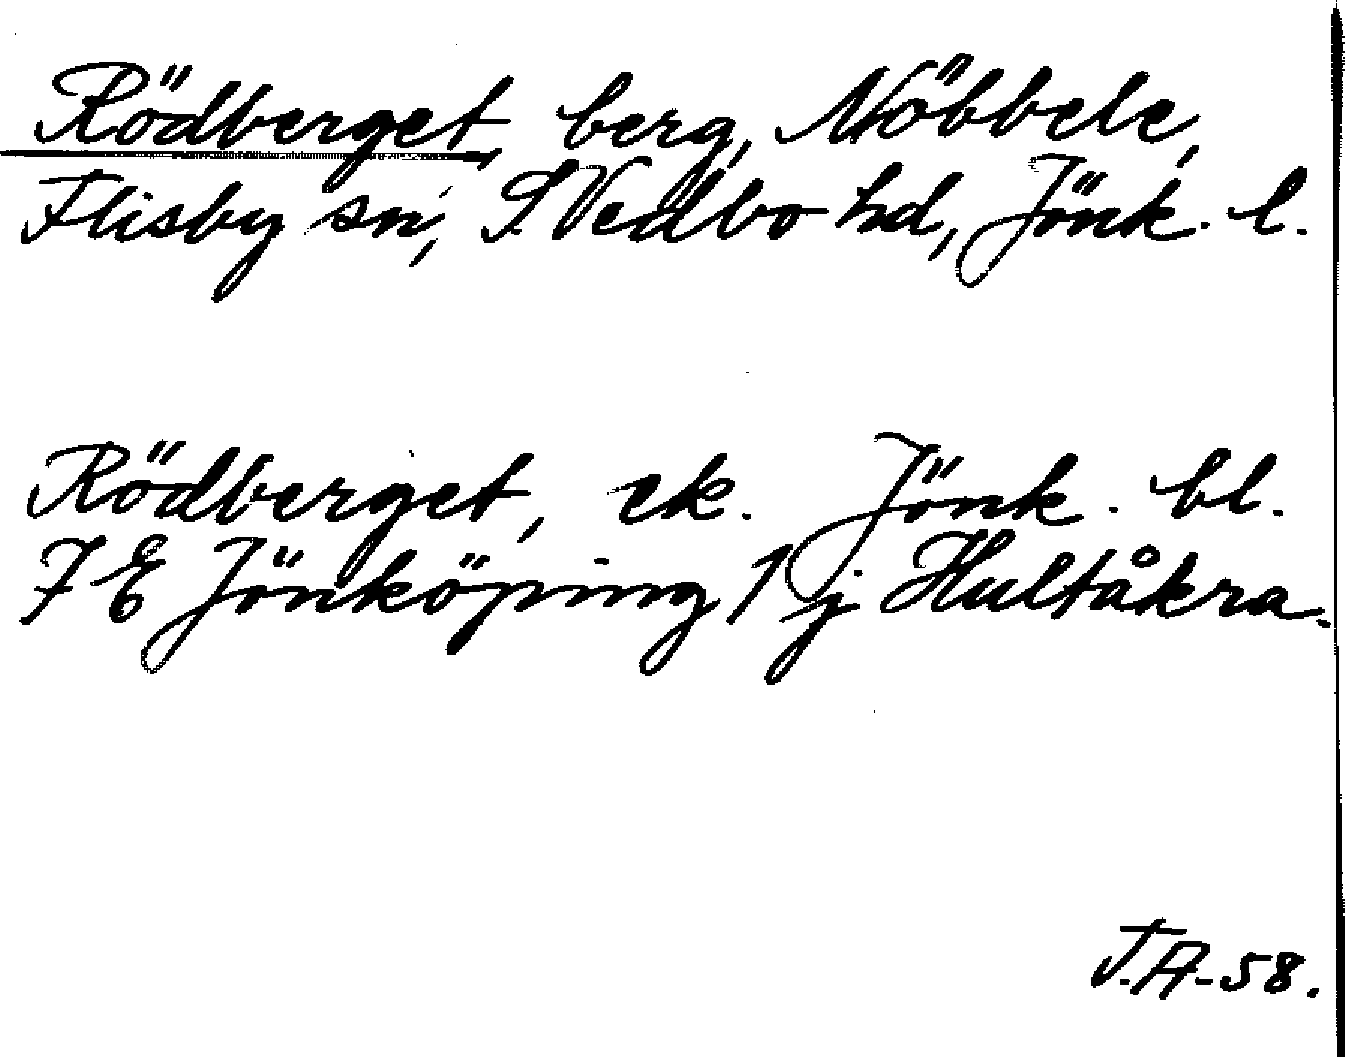 Rödberget, berg, Nöbbele,
Flisby sn, S. Vedbo hd, Jönk. l.
Rödberget, ek. Jönk. bl.
7 E Jönköping 1 j Hultåkra.
J.A-58.